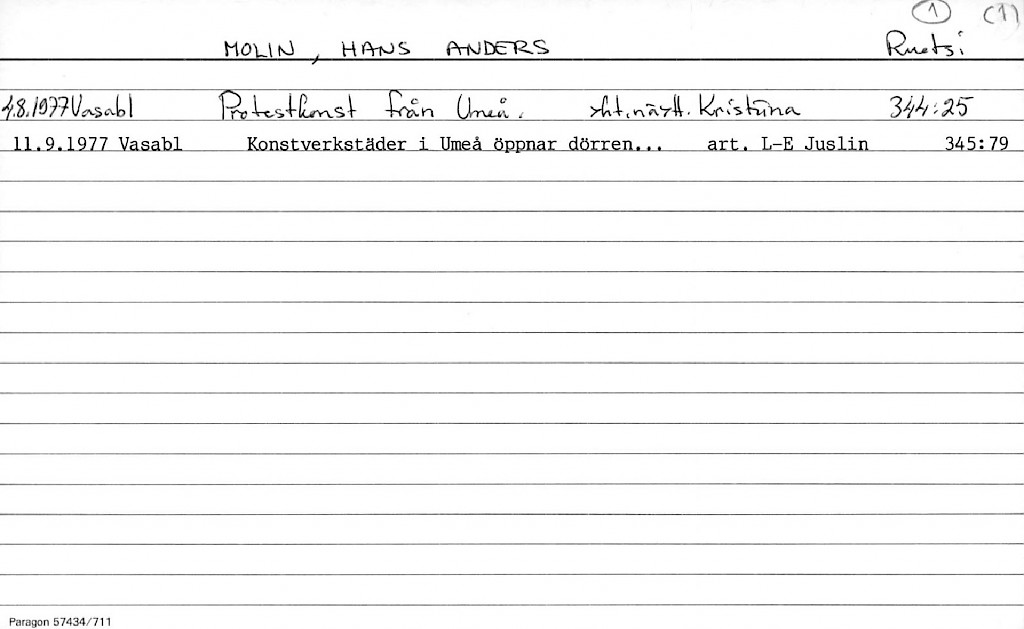 1 (1)
MOLIN, HANS ANDERS Ruotsi
4.8.1977 Vasabl Protestkonst från Umeå. yht.näytt. Kristiina 344:25
11.9.1977 Vasabl Konstverkstäder i Umeå öppnar dörren... art. L-E Juslin 345:79
Paragon 57434/711